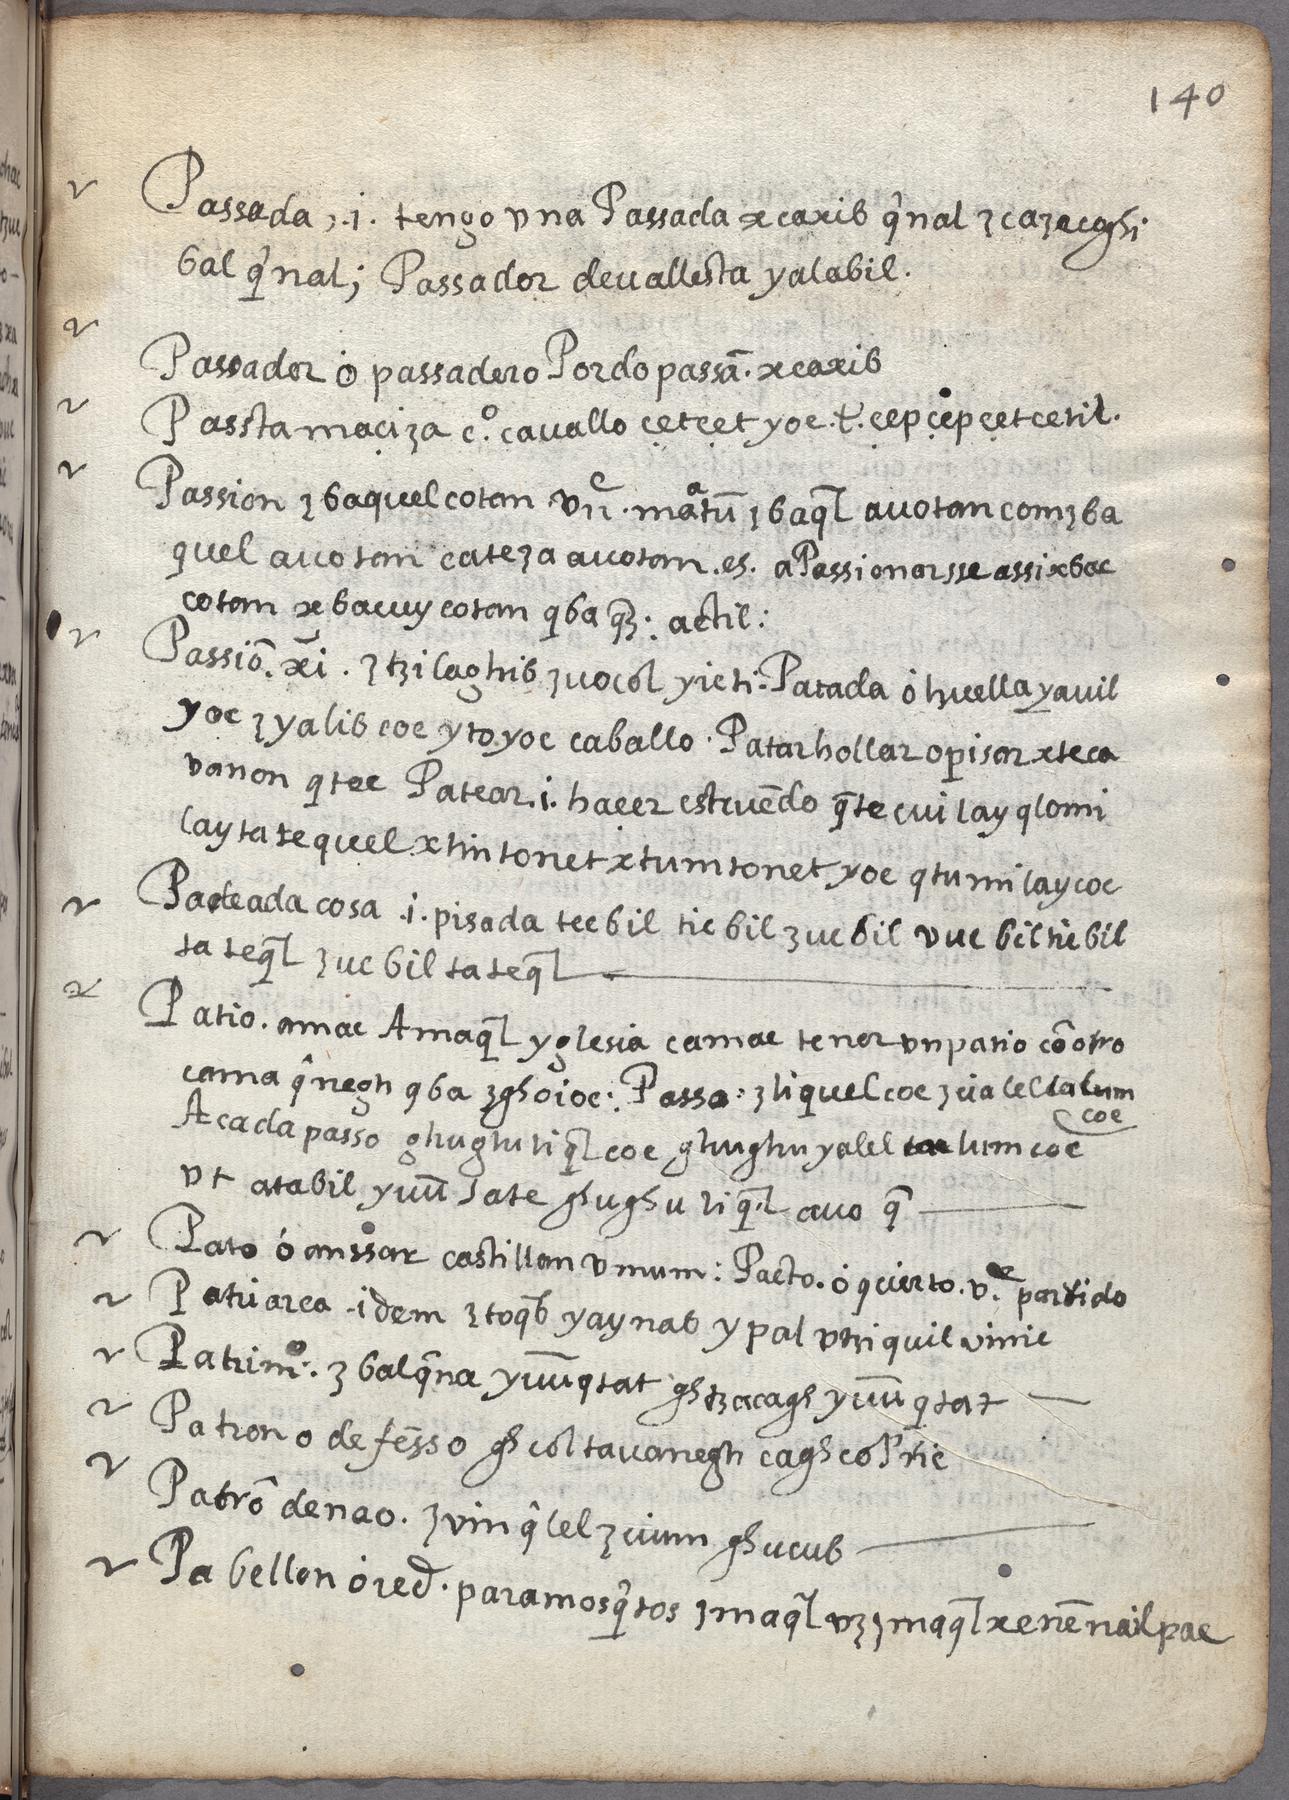 140
Passada ,.i. tengo vna Passada xcaxib q̂nal ʒcaʒacghi
bal q̂nal; Passador deuallesta yalabil.
Passador ò passadero Pordo passā. xcaxib
Passta maciza c.º cauallo çetçet yoc .t̄. çepçepçetcetil.
Passion ʒbaquelcotan vııᶜ. maᵃtū ʒbaq̄l auotan comʒba
quel auotan cateʒa auotan .es. aPassionarsse assixbac
cotan xbacuy cotan qba q̄ʒ: actil:
Passiō. x̄i . ʒtzilaghib ʒuocol yicti: Patada ò huella yauil
yoc ʒyalib coc yto.yoc caballo . Patar hollar opisar xteca
vanon qtec Patear .i. hacer estruēdo q̄te cuilay qlomi
lay tatequel xtintonet xtumtonet yoc qtumilaycoc
Padeada cosa .i. pisada tecbil ticbil ʒucbil vucbiltiebil
ta teq̄l ʒucbil ta teq̄l
Patio. amac Amaq̄l yglesia camac tener vnpatio cōotro
cama q̂negh qba ʒghoioc: Passo: ʒliquelcoc ʒcialeltalum
coc
A cada passo ghughuliq̄l coc ghughuyalel lumcoc
vt atabil yuū Sate ghughu liq̄l auo q̄
Pato ó anssar castillan vmum: Pacto. ò qcierto. v.ᵉ partido
Patriarca .idem ʒtoq̄b yaynab ypal vtziquil vinic
Patrimº. ʒbalq̄na yuūqtat ghtzacagh yuūqtat
Patron o defēsso ghcoltauanegh caghcol'tic
Patrō denao. ʒvinq̂lel ʒcium ghucub
Pabellon òred. paramosq̂tos ʒmaq̄l vʒʒmaq̄l xenēnailpac